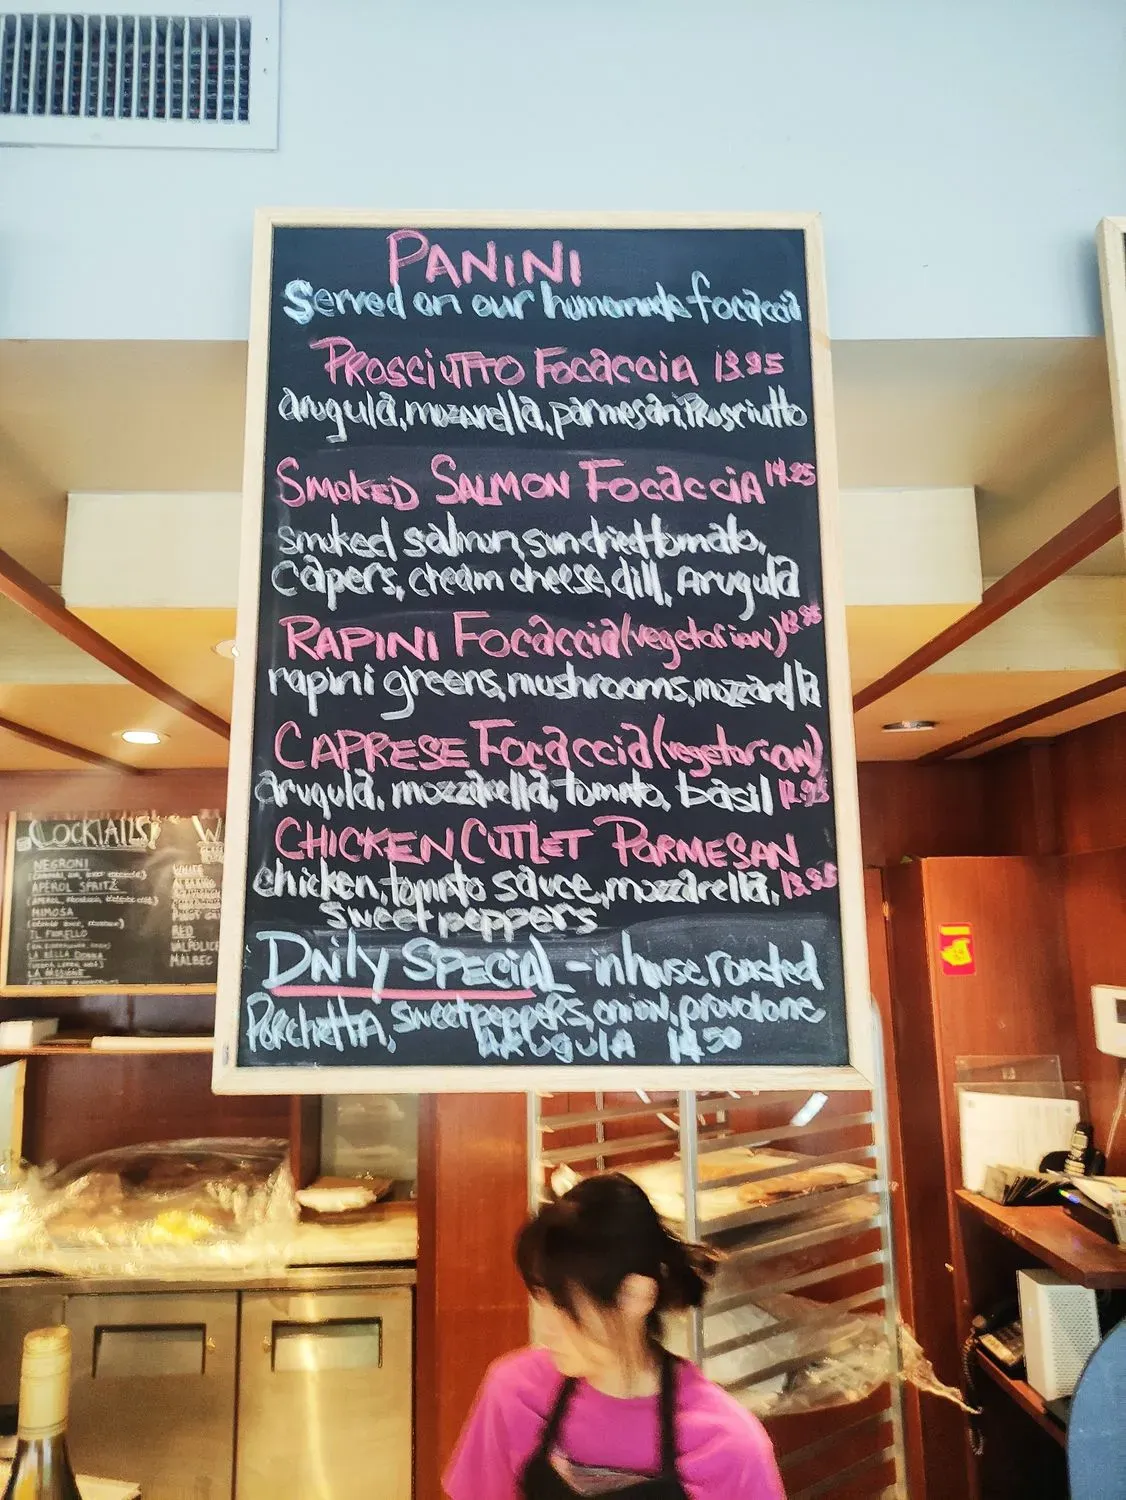 PANINI
Served on our homemade focaccia
PROSCIUTTO FOCACCIA 13.95
arugula, mozarella, parmesan, Prosciutto
SMOKED SALMON FOCACCIA 14.25
smoked salmon, sundried tomato,
capers, cream cheese, dill, Arugula
RAPINI FOCACCIA (vegetarian)
rapini greens, mushrooms, mozzarella
CAPRESE FOCACCIA (vegetarian)
arugula, mozzarella, tomato, basil 12.95
CHICKEN CUTLET PARMESAN
chicken, tomato sauce, mozzarella, 13.95
sweet peppers
DAILY SPECIAL - inhouse roasted
PORCHETTA, sweet peppers, onion, provolone
ARUGULA 14.50
COCKTAILS
NEGRONI
APEROL SPRITZ
MIMOSA
IL FIORELLO
LA BELLA DONNA
WHITE
RED
VALPOLICE
MALBEC